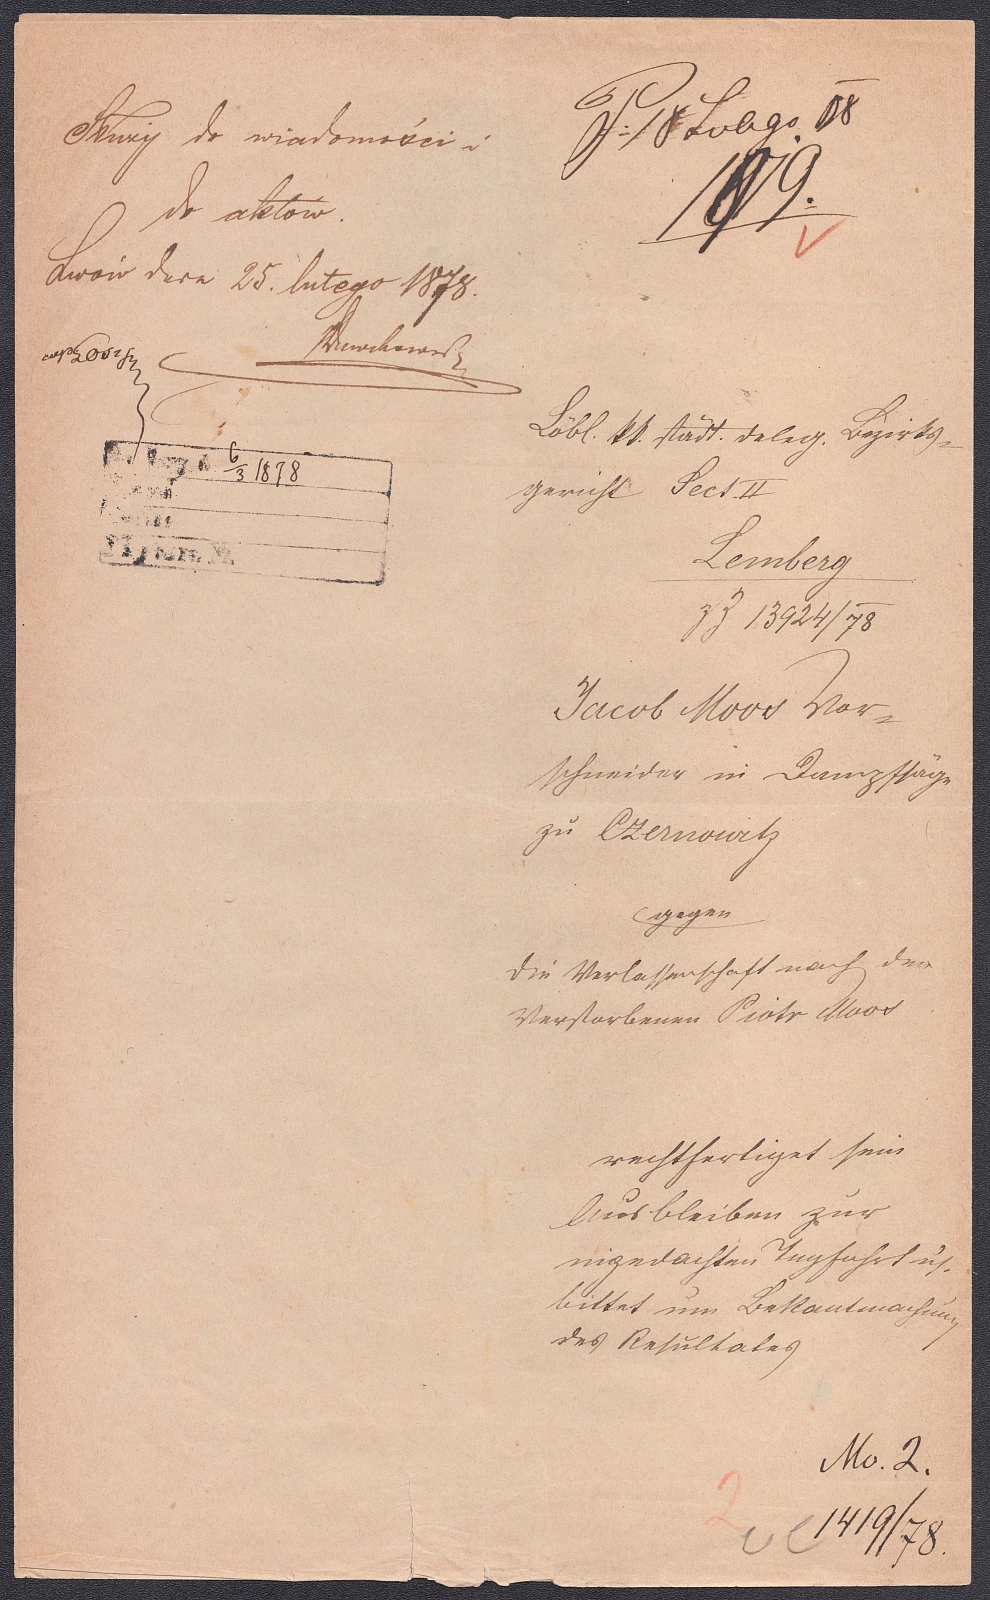 Służy do wiadomości i
do aktów.
Lwów dnia 25. lutego 1878.
6/3 1878
P: 18 Lutego 78
1879.
Löbl. kk. städt. deleg. Bezirks-
gericht Sect II
Lemberg
zZ 13924/78
Jacob Moos Vor-
schneider in Dampfsäge
zu Czernowitz
gegen
die Verlassenschaft nach dem
Verstorbenen Piotr Moos
rechtfertiget sein
Ausbleiben zur
Tagfahrt u.
bittet um Bekantmachung
des Resultates
Mo. 2.
2
1419/78.